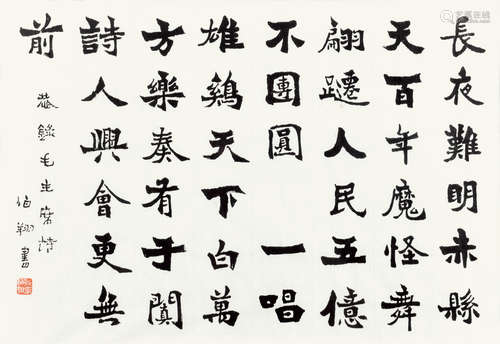 長夜難明赤縣
天百年魔怪舞
翩躚人民五億
不團圓 一唱
雄鷄天下白萬
方樂奏有于闐
詩人興會更無
前
恭錄毛主席詩
伯翔書